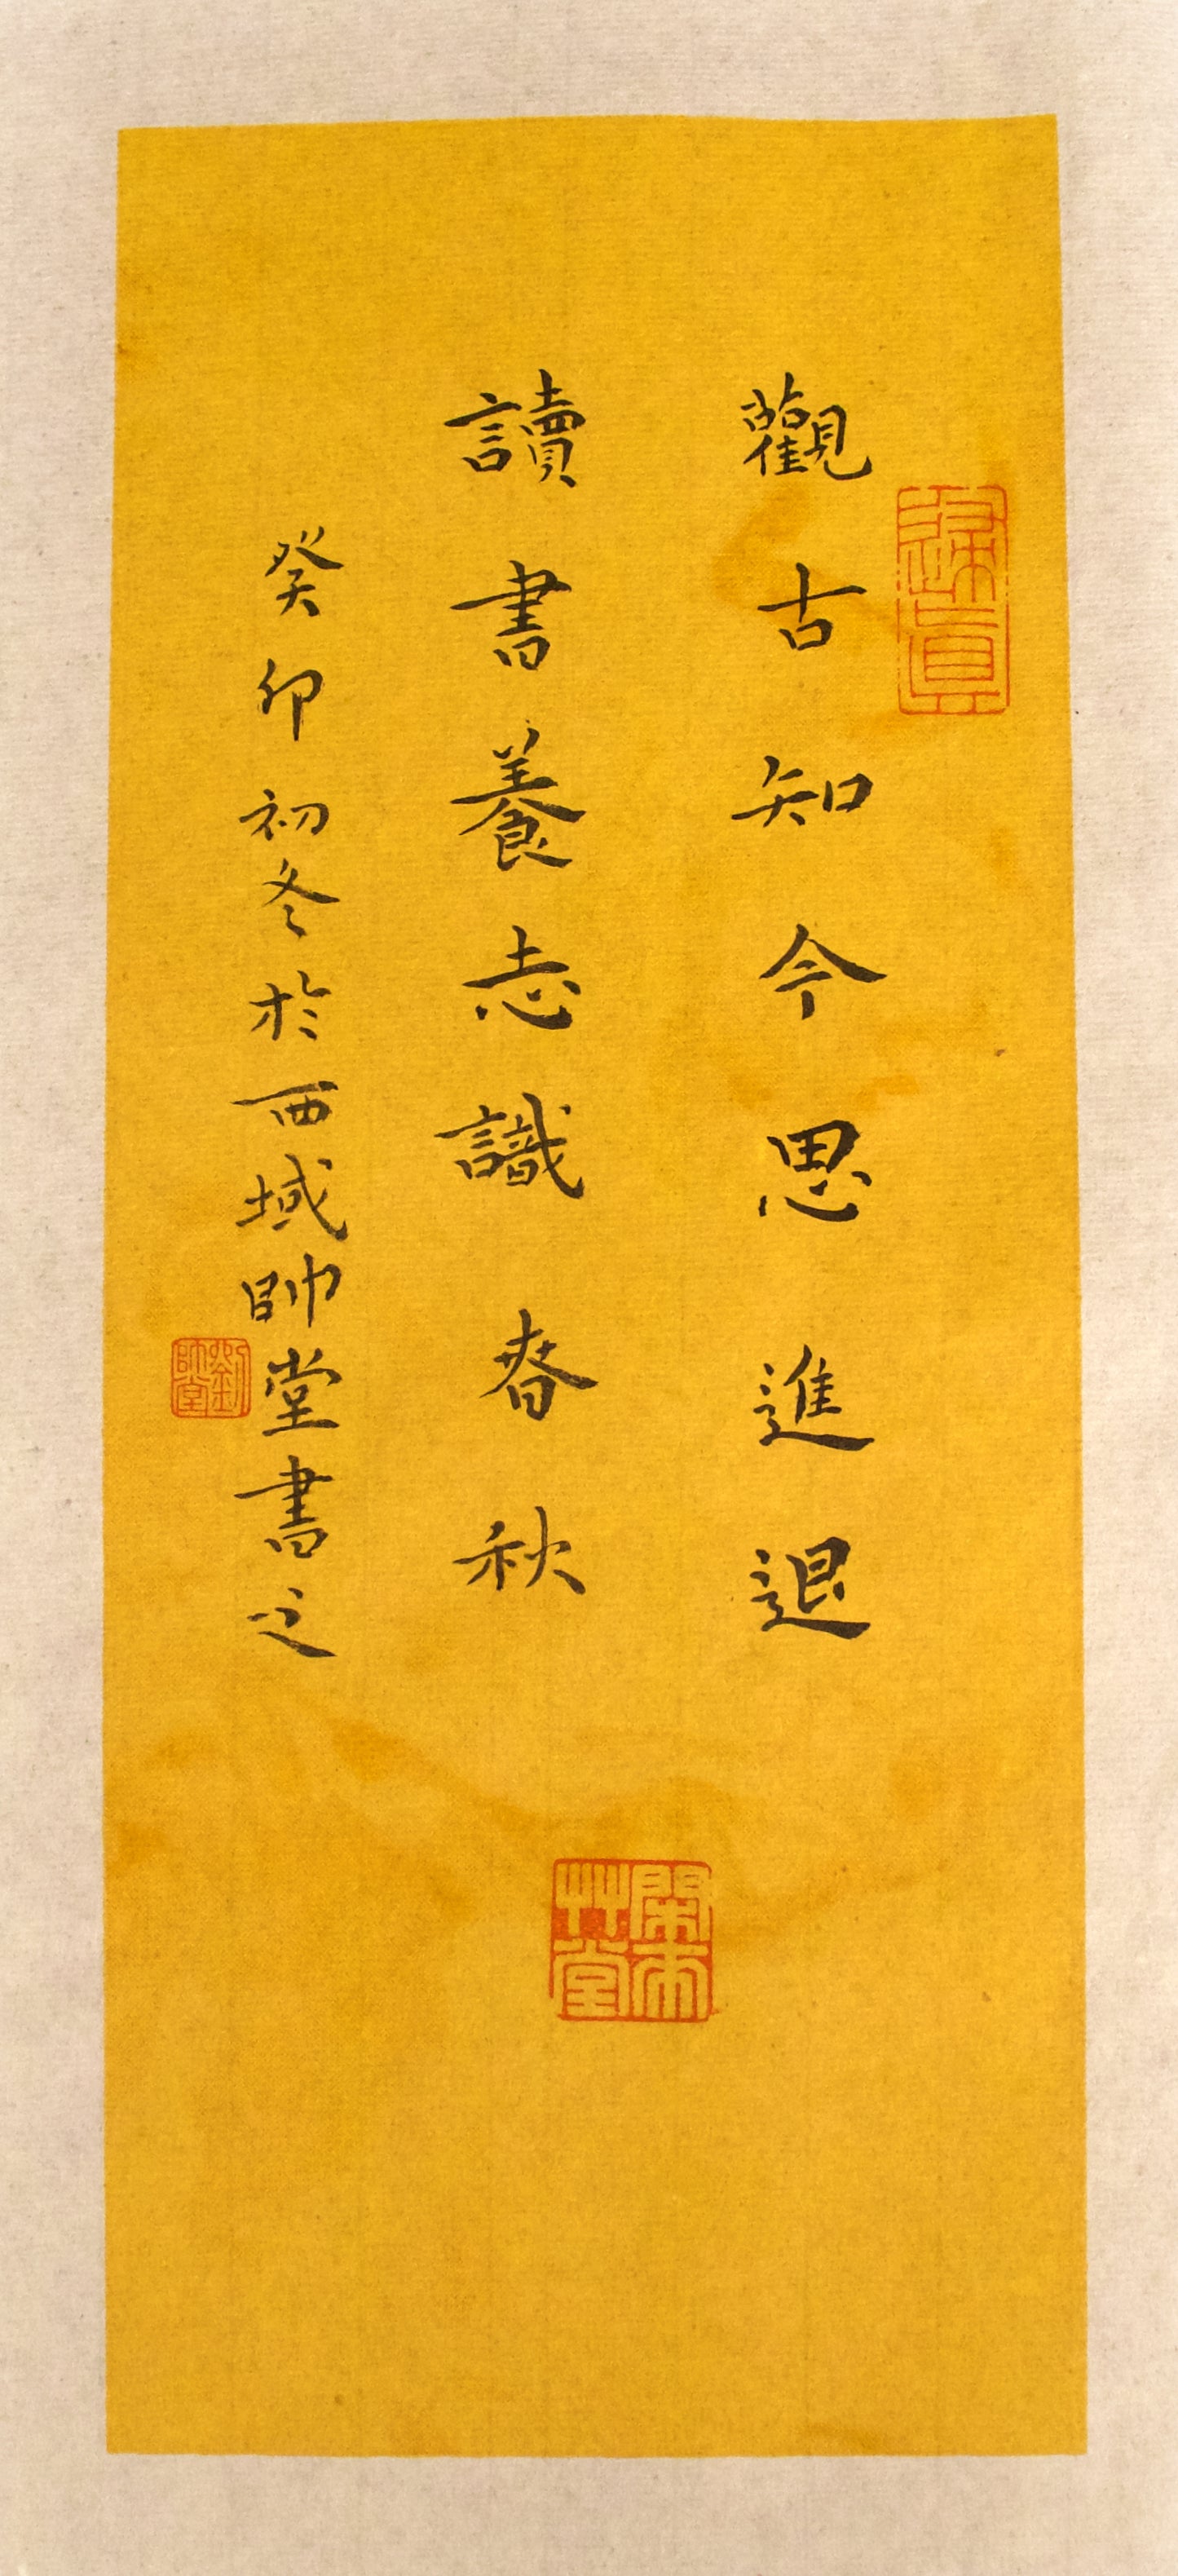 觀古知今思進退
讀書養志識春秋
癸卯初冬於西域帥堂書之
劉帥堂